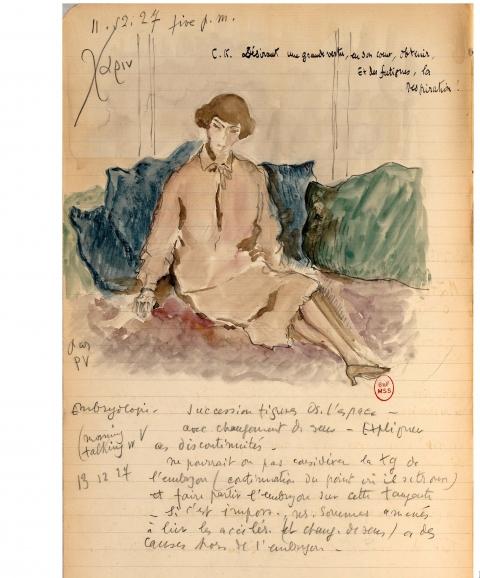 11. 12. 27 five p.m.
Χαριν
C.K. Désirant une grande vertu, en son cœur, obtenir,
Et des fatigues, la
respiration!
PV
BNF
MSS
Embryologie. Succession figures ds. l'espace –
avec changement de sens – Expliquer
ces discontinuités –
(morning
talking w V
ne pourrait on pas considérer la tg de
13 12 27
l'embryon (continuation du point où il se trouve)
et faire partir l'embryon sur cette tangente
– Si c'est imposs. ns. sommes amenés
à lier les accélér. (et chang. de sens) à des
causes hors de l'embryon –